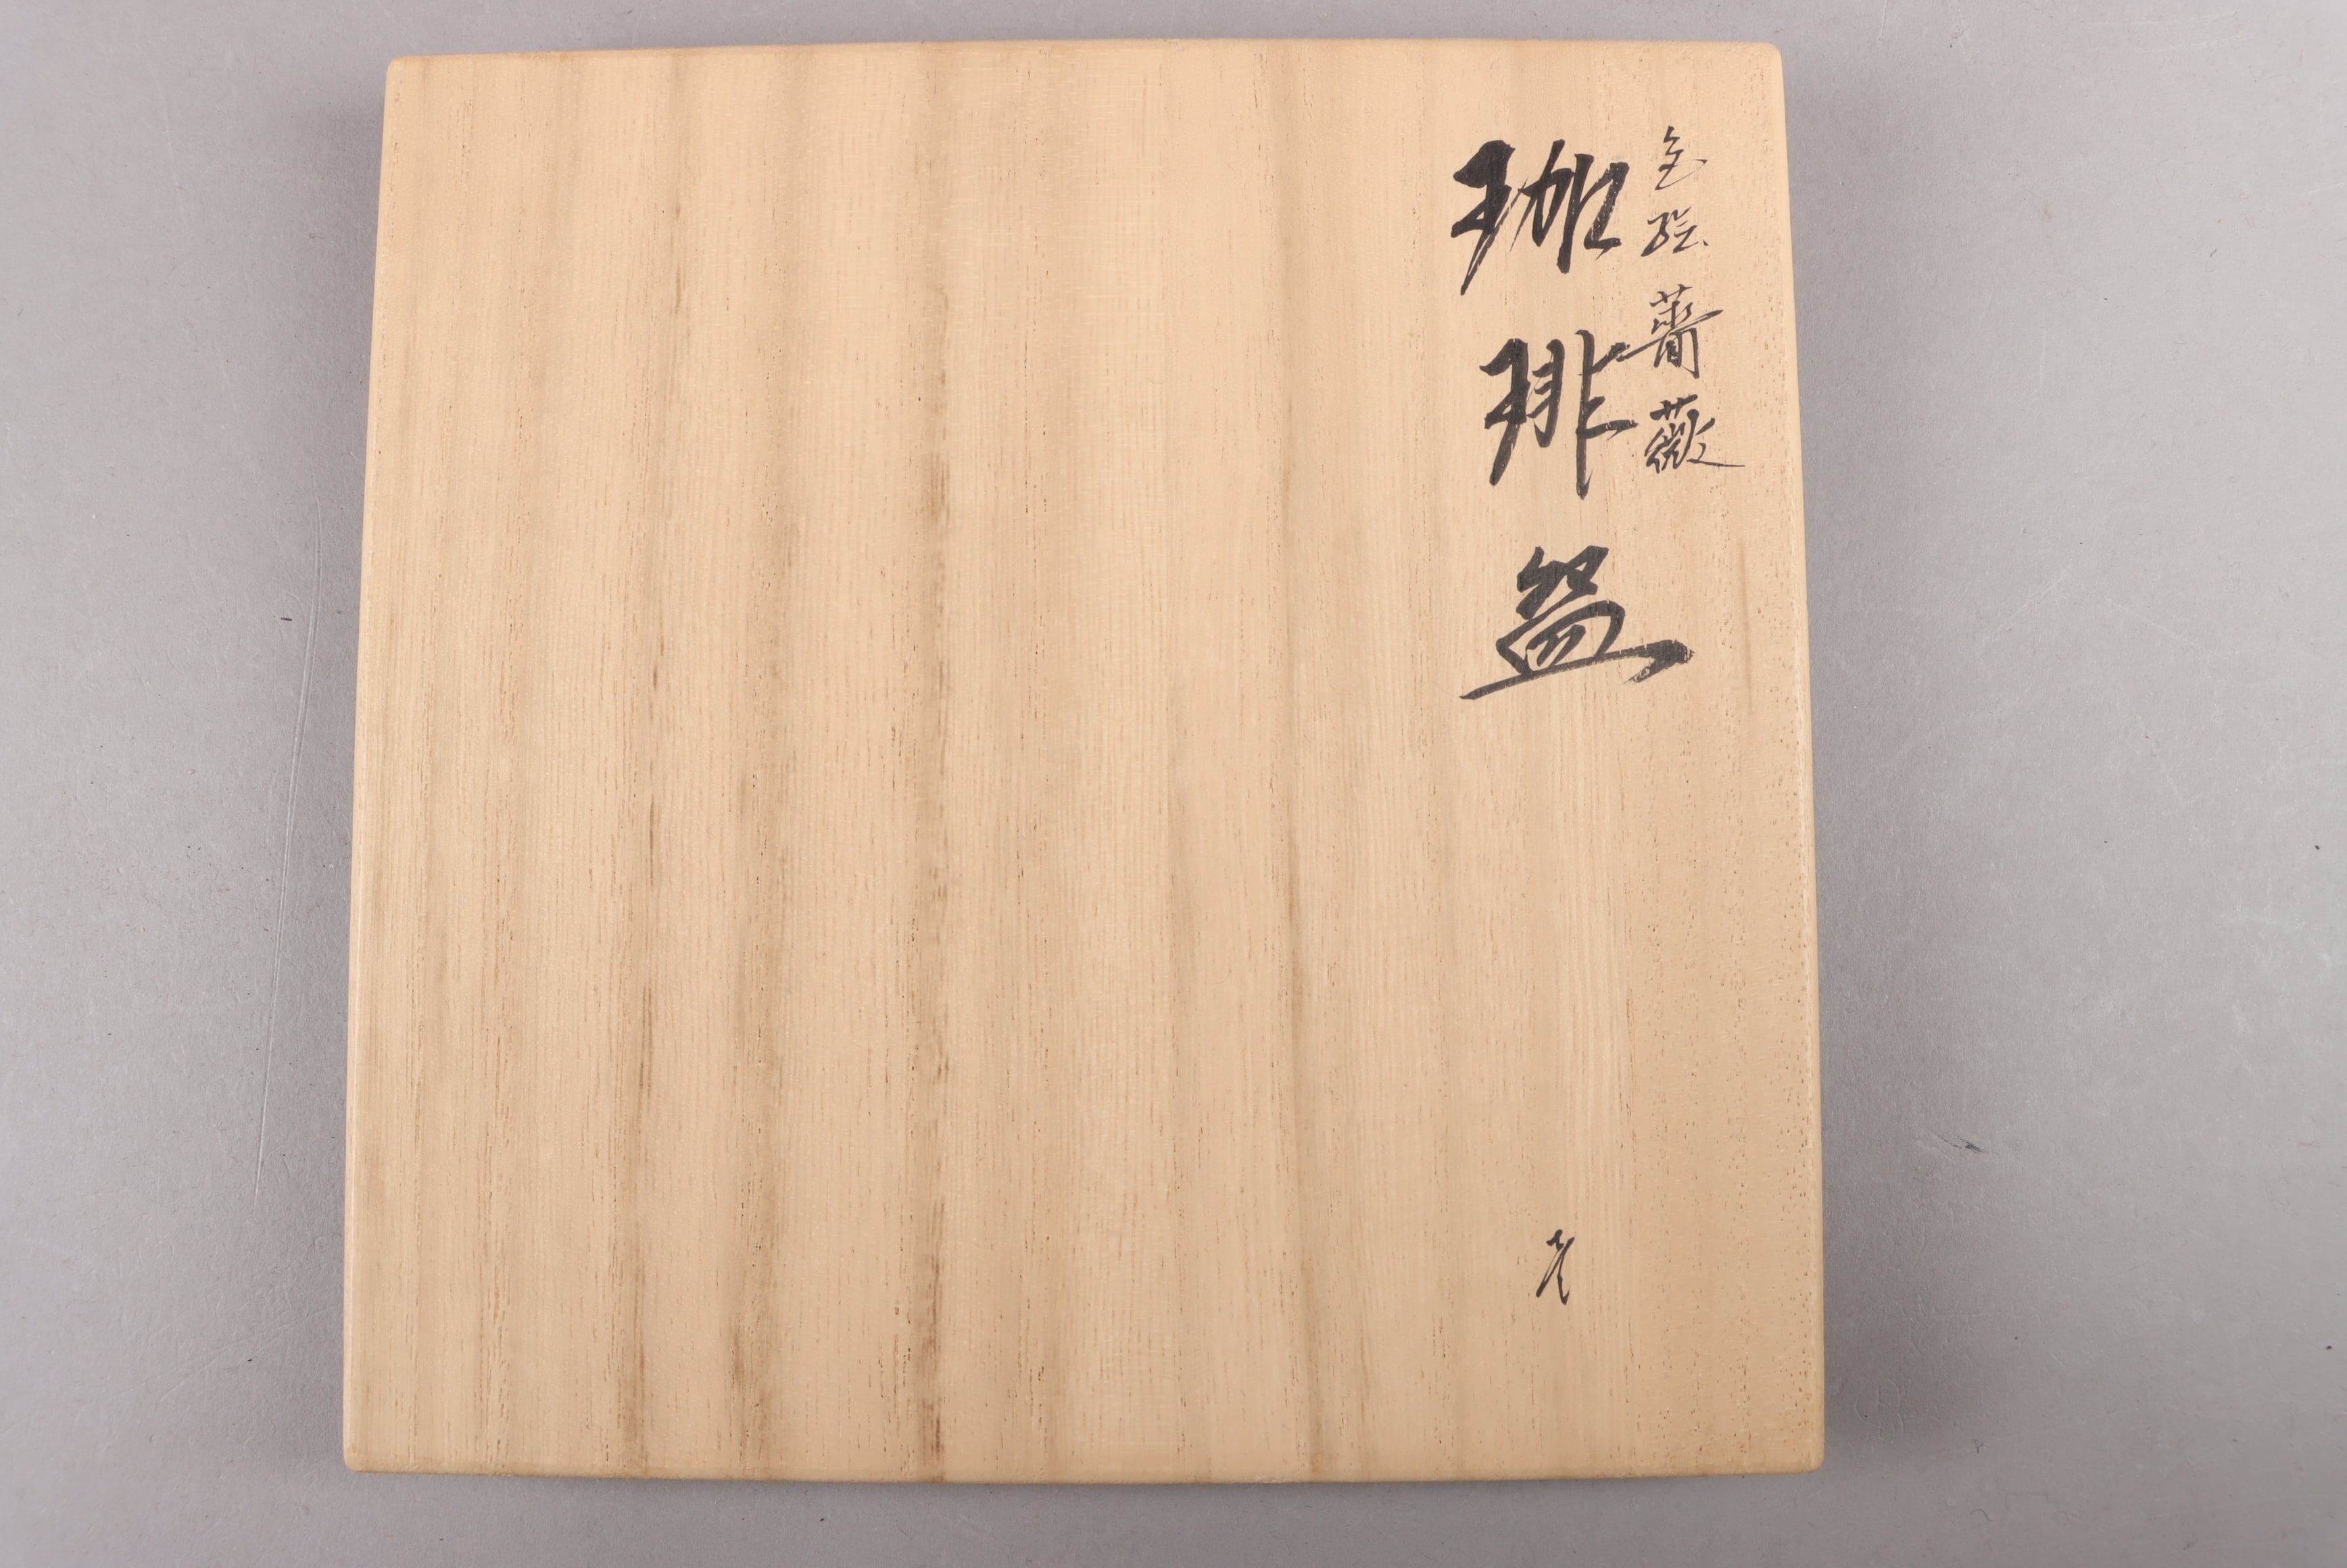 色絵薔薇
珈琲盌